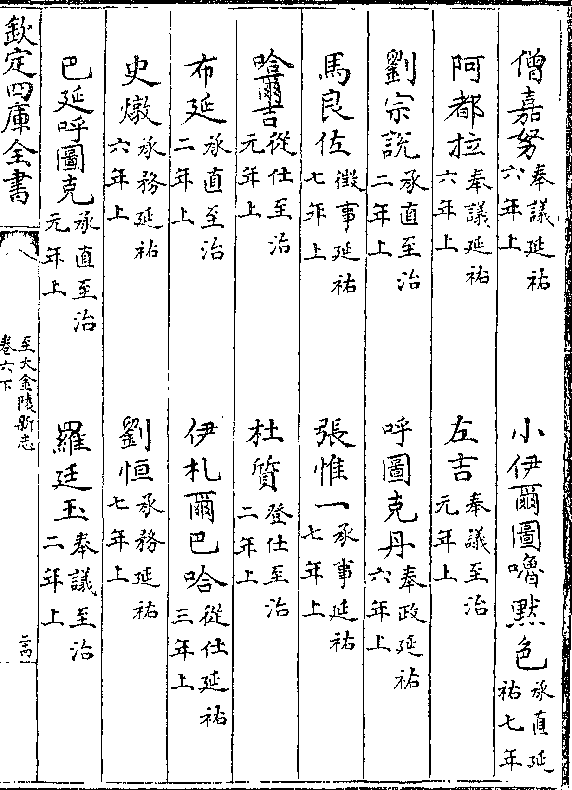 僧嘉努奉議延祐六年上
小伊爾圖嚕黙色承直延祐七年
阿都拉奉議延祐六年上
左吉奉議至治元年上
劉宗說承直至治二年上
呼圖克丹奉政延祐六年上
馬良佐徵事延祐七年上
張惟一承事延祐七年上
哈爾吉從仕至治元年上
杜質登仕至治二年上
布延承直至治二年上
伊札爾巴哈從仕延祐三年上
史燉承務延祐六年上
劉恒承務延祐七年上
巴延呼圖克承直至治元年上
羅廷玉奉議至治二年上
欽定四庫全書
至大金陵新志
卷六下
二四